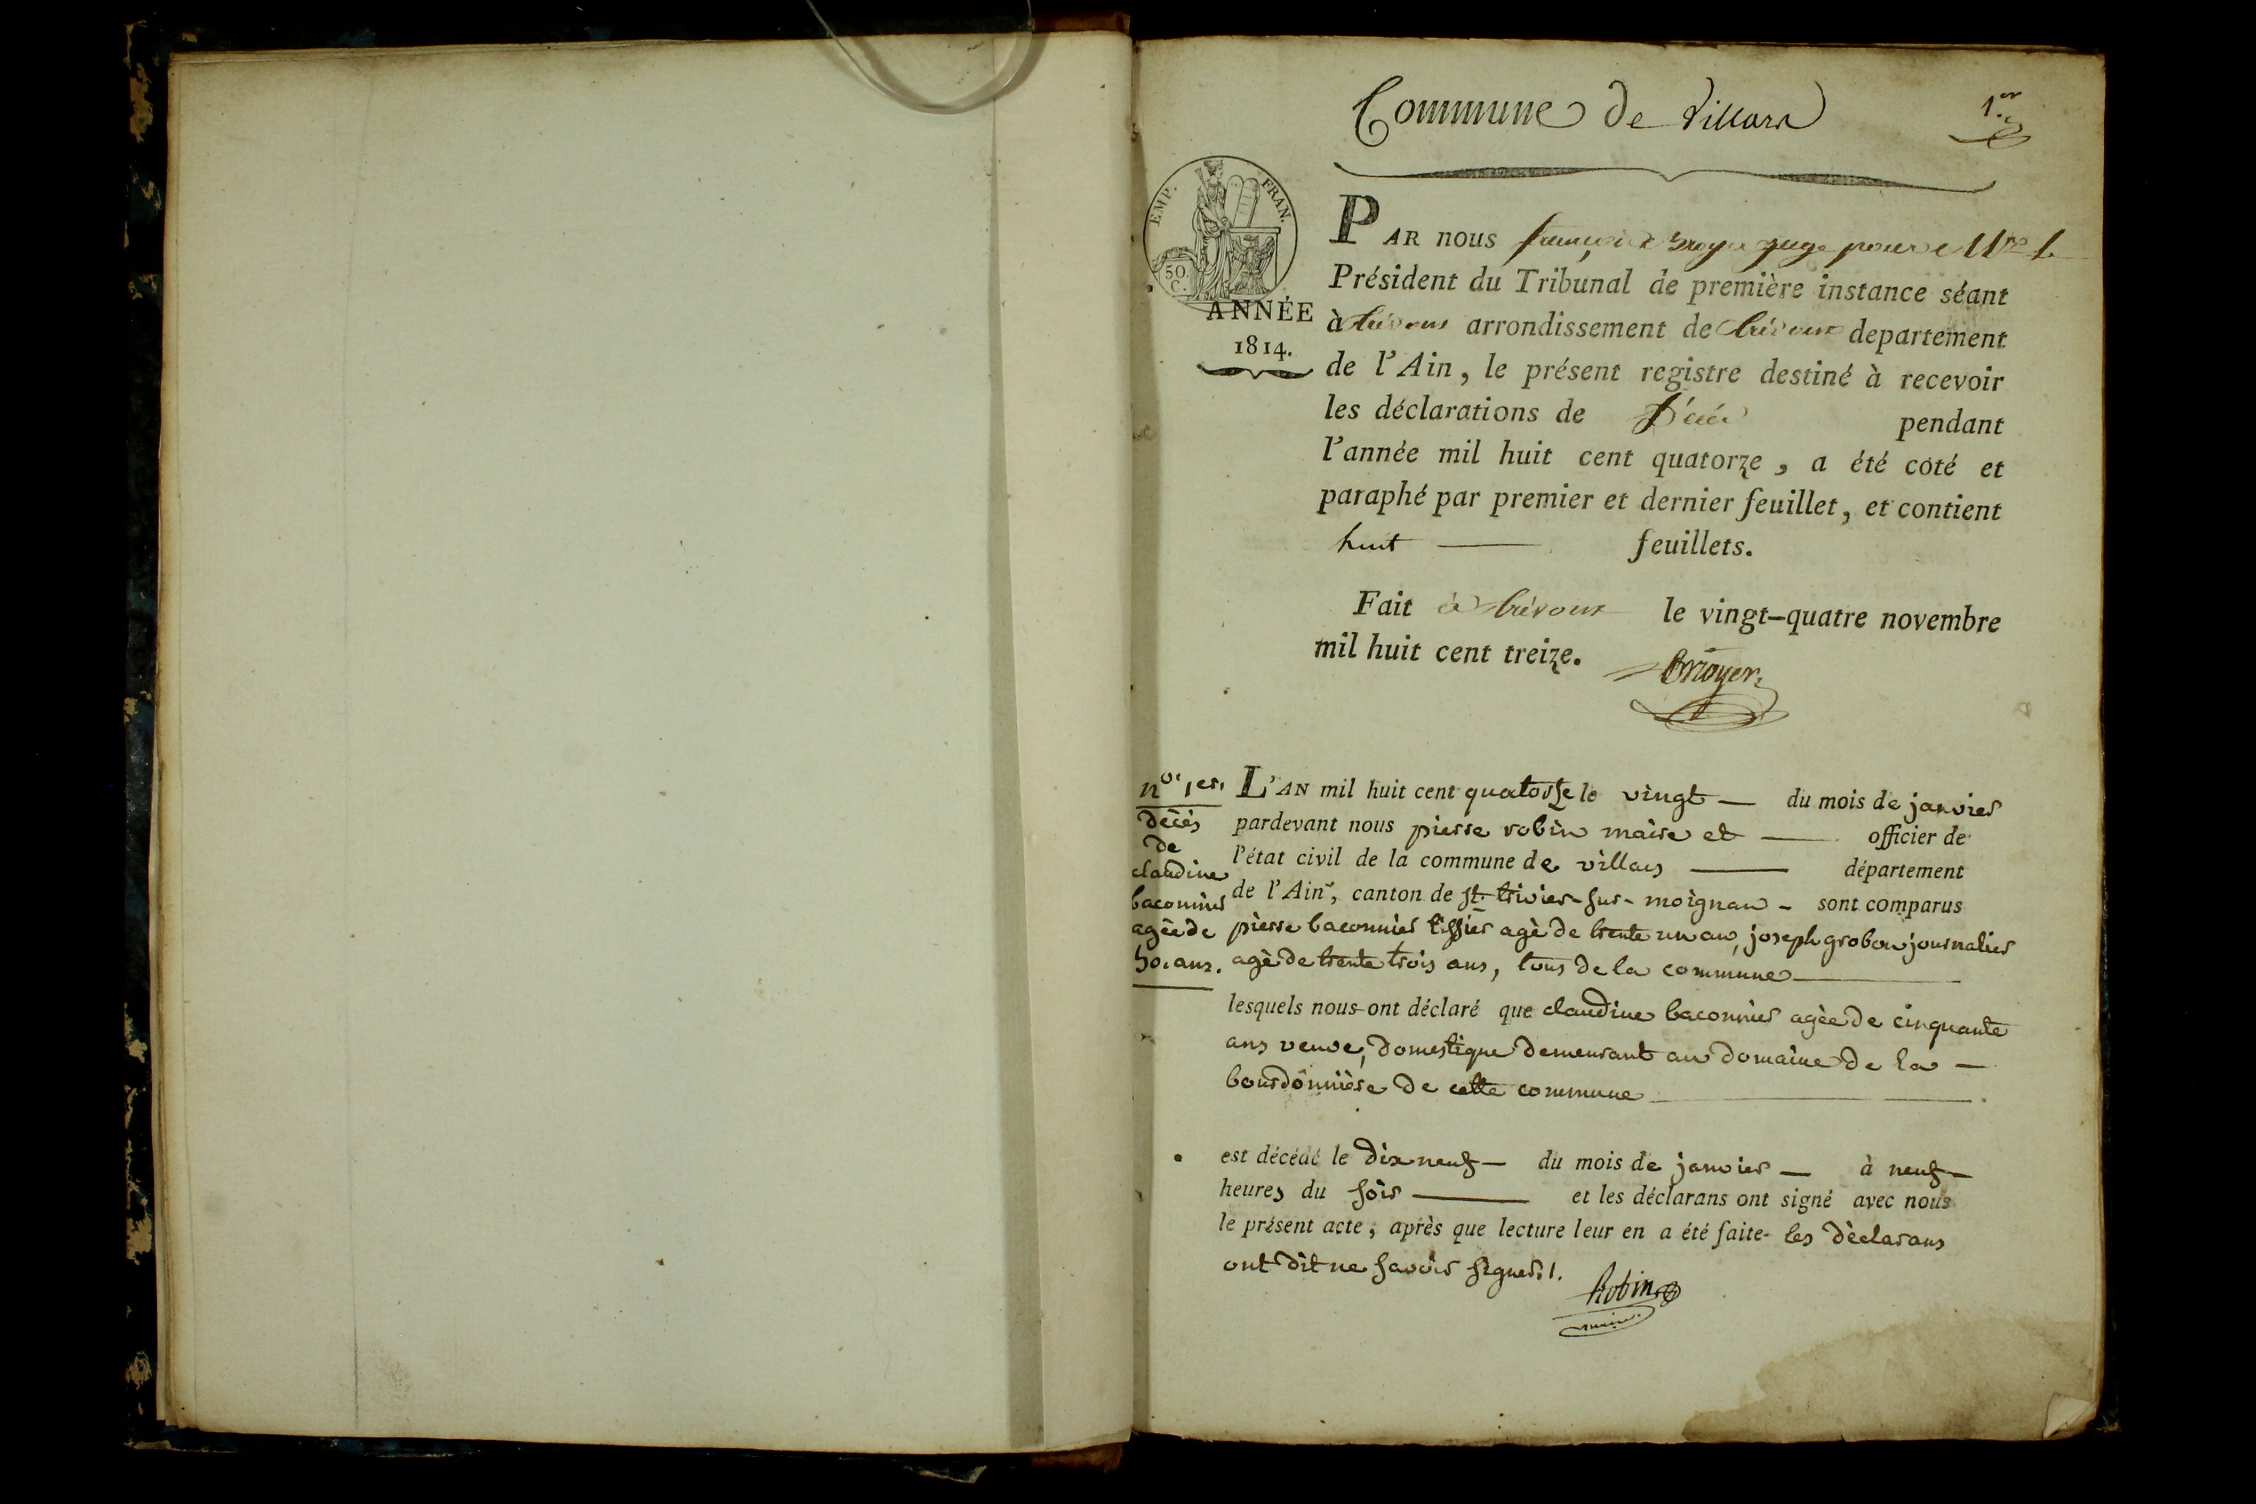 Commune de Villars
1.er
EMP. FRAN.
50. C.
ANNÉE
1814.
PAR nous françois juge pour Mr le
Président du Tribunal de première instance séant
à trévoux arrondissement de trévoux departement
de l'Ain, le présent registre destiné à recevoir
les déclarations de Décès pendant
l'année mil huit cent quatorze, a été coté et
paraphé par premier et dernier feuillet, et contient
huit feuillets.
Fait à trévoux le vingt-quatre novembre
mil huit cent treize.
no. 1er.
décès
de
claudine
baconnier
agèe de
50. ans.
L'AN mil huit cent quatorze le vingt — du mois de janvier
pardevant nous pierre robin maire et — officier de
l'état civil de la commune de villars — département
de l'Ain, canton de st. trivier-sur-moignan - sont comparus
pierre baconnier tissier agè de trente un an, joseph grobon journalier
agè de trente trois ans, tous de la commune —
lesquels nous ont déclaré que claudine baconnier agèe de cinquante
ans veuve, domestique demeurant au domaine de la —
bourdonnière de cette commune —
est décédé le dix neuf — du mois de janvier — à neuf —
heures du soir — et les déclarans ont signé avec nous
le présent acte, après que lecture leur en a été faite- les dèclarans
ont dit ne savoir signer. /.
Robin
maire